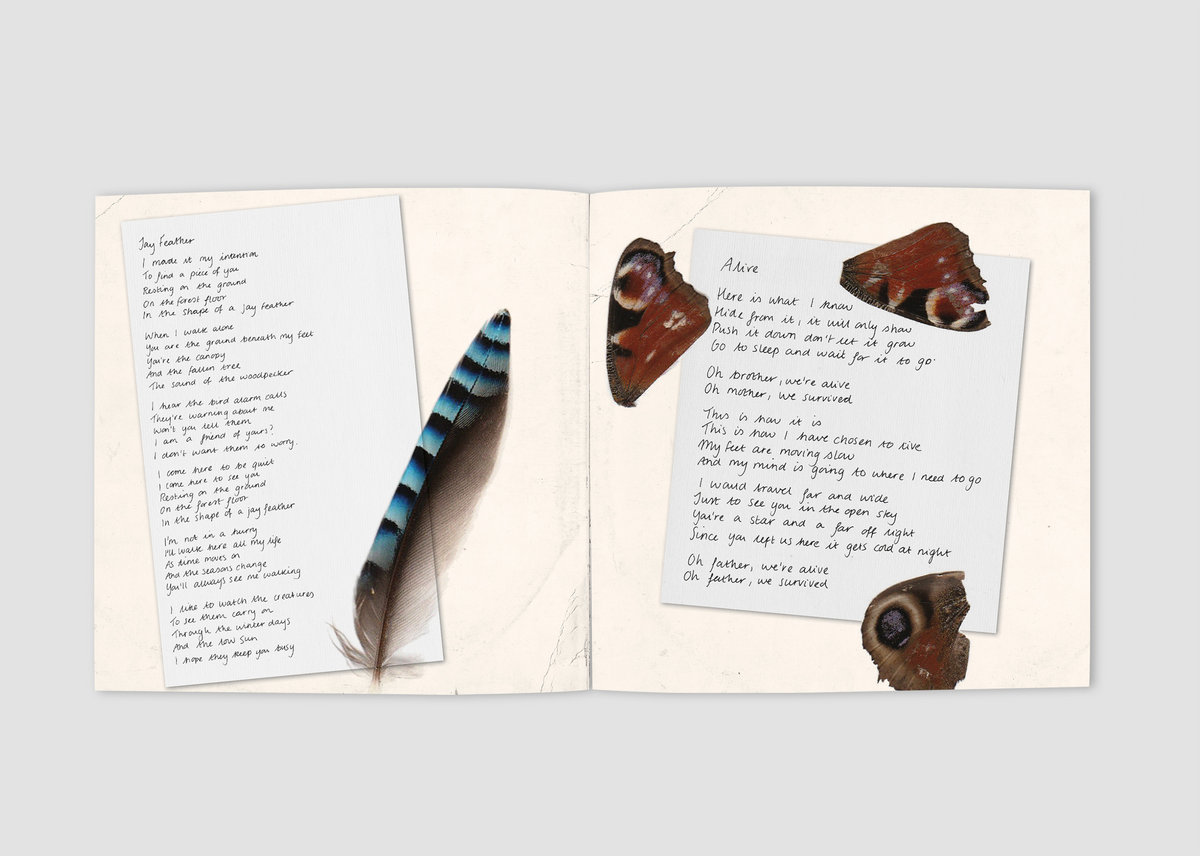 Jay Feather
I made it my intention
To find a piece of you
Resting on the ground
On the forest floor
In the shape of a jay feather
When I walk alone
You are the ground beneath my feet
You're the canopy
And the fallen tree
The sound of the woodpecker
I hear the bird alarm calls
They're warning about me
Won't you tell them
I am a friend of yours?
I don't want them to worry.
I come here to be quiet
I came here to see you
Resting on the ground
On the forest floor
In the shape of a jay feather
I'm not in a hurry
I'll walk here all my life
As time moves on
And the seasons change
You'll always see me walking
I like to watch the creatures
To see them carry on
Through the winter days
And the low sun
I hope they keep you busy
Alive
Here is what I know
Hide from it, it will only show
Push it down don't let it grow
Go to sleep and wait for it to go.
Oh brother, we're alive
Oh mother, we survived
This is how it is
This is how I have chosen to live
My feet are moving slow
And my mind is going to where I need to go
I would travel far and wide
Just to see you in the open sky
You're a star and a far off light
Since you left us here it gets cold at night
Oh father, we're alive
Oh father, we survived